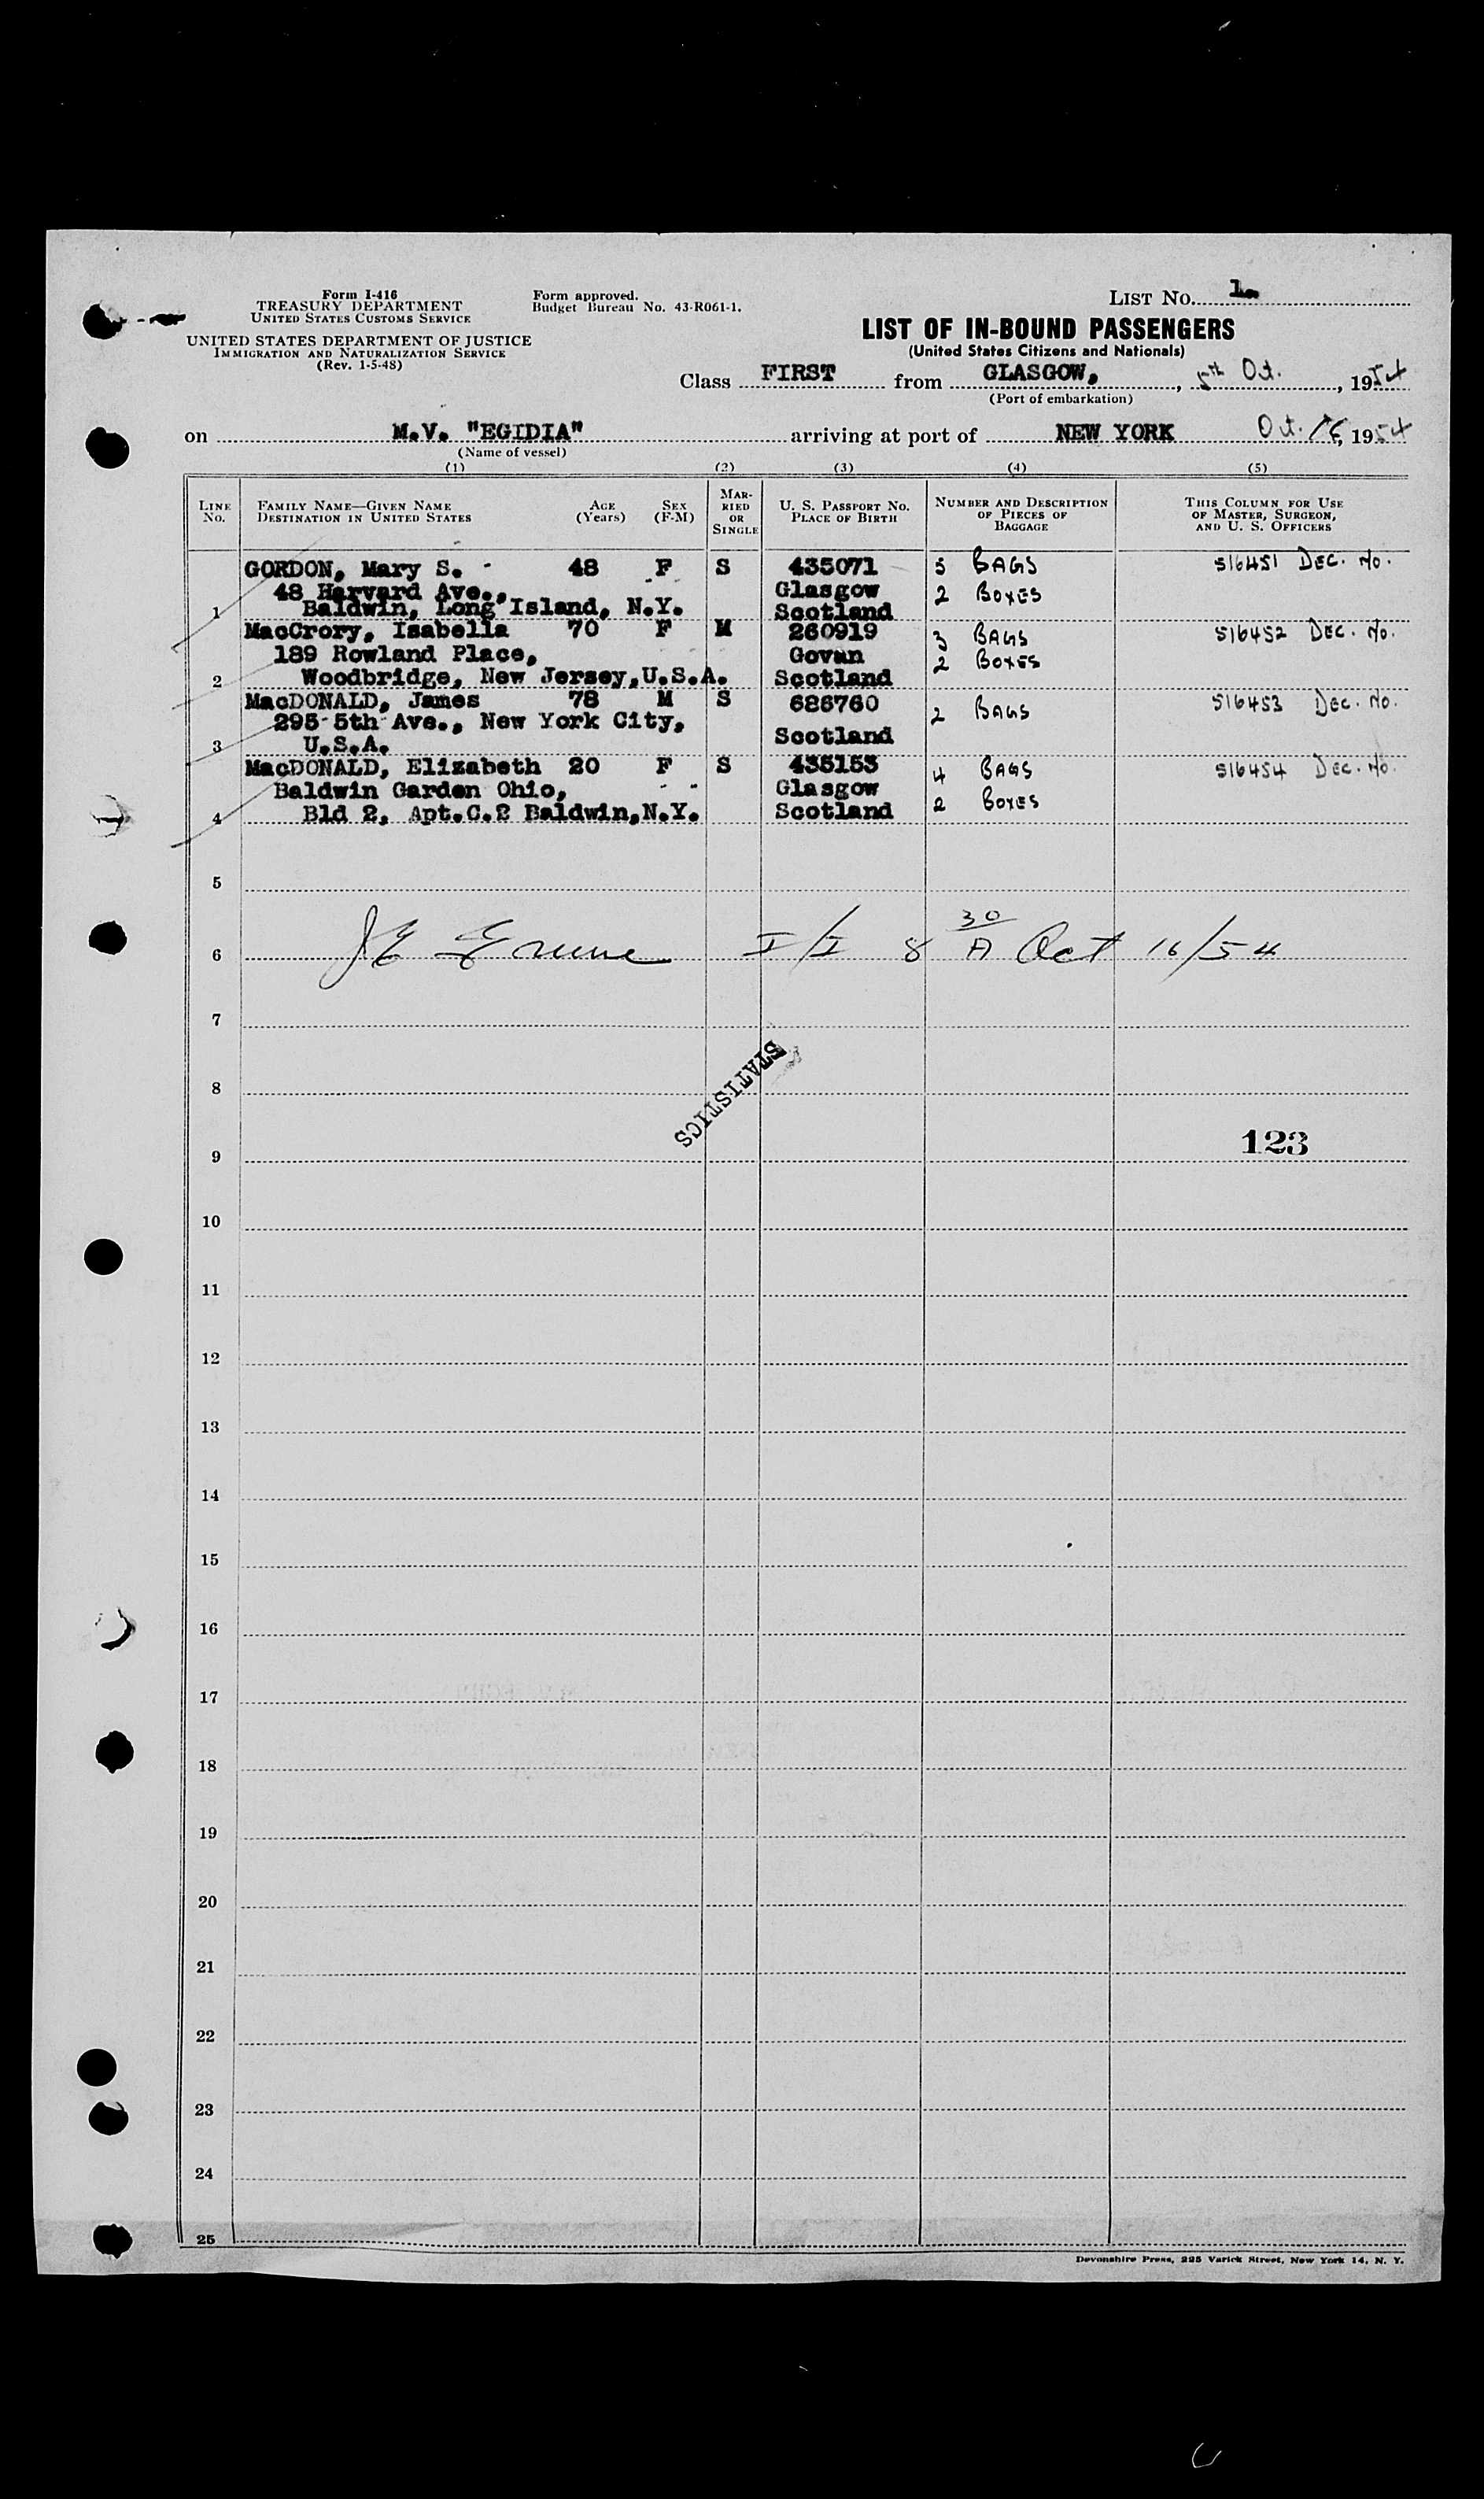 Form I-416
TREASURY DEPARTMENT
UNITED STATES CUSTOMS SERVICE
UNITED STATES DEPARTMENT OF JUSTICE
IMMIGRATION AND NATURALIZATION SERVICE
(Rev. 1-5-48)
Form approved.
Budget Bureau No. 43-R061-1.
LIST No. 1.
LIST OF IN-BOUND PASSENGERS
(United States Citizens and Nationals)
Class FIRST from GLASGOW, , 5th Oct. , 1954
(Port of embarkation)
on M.V. "EGIDIA" arriving at port of NEW YORK Oct. 16, 1954
(Name of vessel)
(1) (2) (3) (4) (5)
LINE No. FAMILY NAME—GIVEN NAME DESTINATION IN UNITED STATES AGE (Years) SEX (F-M) MARRIED OR SINGLE U. S. PASSPORT NO. PLACE OF BIRTH NUMBER AND DESCRIPTION OF PIECES OF BAGGAGE THIS COLUMN FOR USE OF MASTER, SURGEON, AND U. S. OFFICERS
GORDON, Mary S. 48 F S 435071 BAGS 516451 DEC. No.
48 Harvard Ave., Glasgow 2 BOXES
1 Baldwin, Long Island, N.Y. Scotland
MacCrory, Isabella 70 F M 260919 3 BAGS 516452 DEC. No.
189 Rowland Place, Govan 2 BOXES
2 Woodbridge, New Jersey, U.S.A. Scotland
MacDONALD, James 78 M S 686760 2 BAGS 516453 DEC. No.
295 5th Ave., New York City,
3 U.S.A. Scotland
MacDONALD, Elizabeth 20 F S 435153 4 BAGS 516454 DEC. No.
Baldwin Garden Ohio, Glasgow 2 BOXES
4 Bld 2, Apt.C.2 Baldwin, N.Y. Scotland
5
6 I/I 8 30 A Oct 16/54
7
STATISTICS
8
123
9
10
11
12
13
14
15
16
17
18
19
20
21
22
23
24
25
Devonshire Press, 225 Varick Street, New York 14, N. Y.